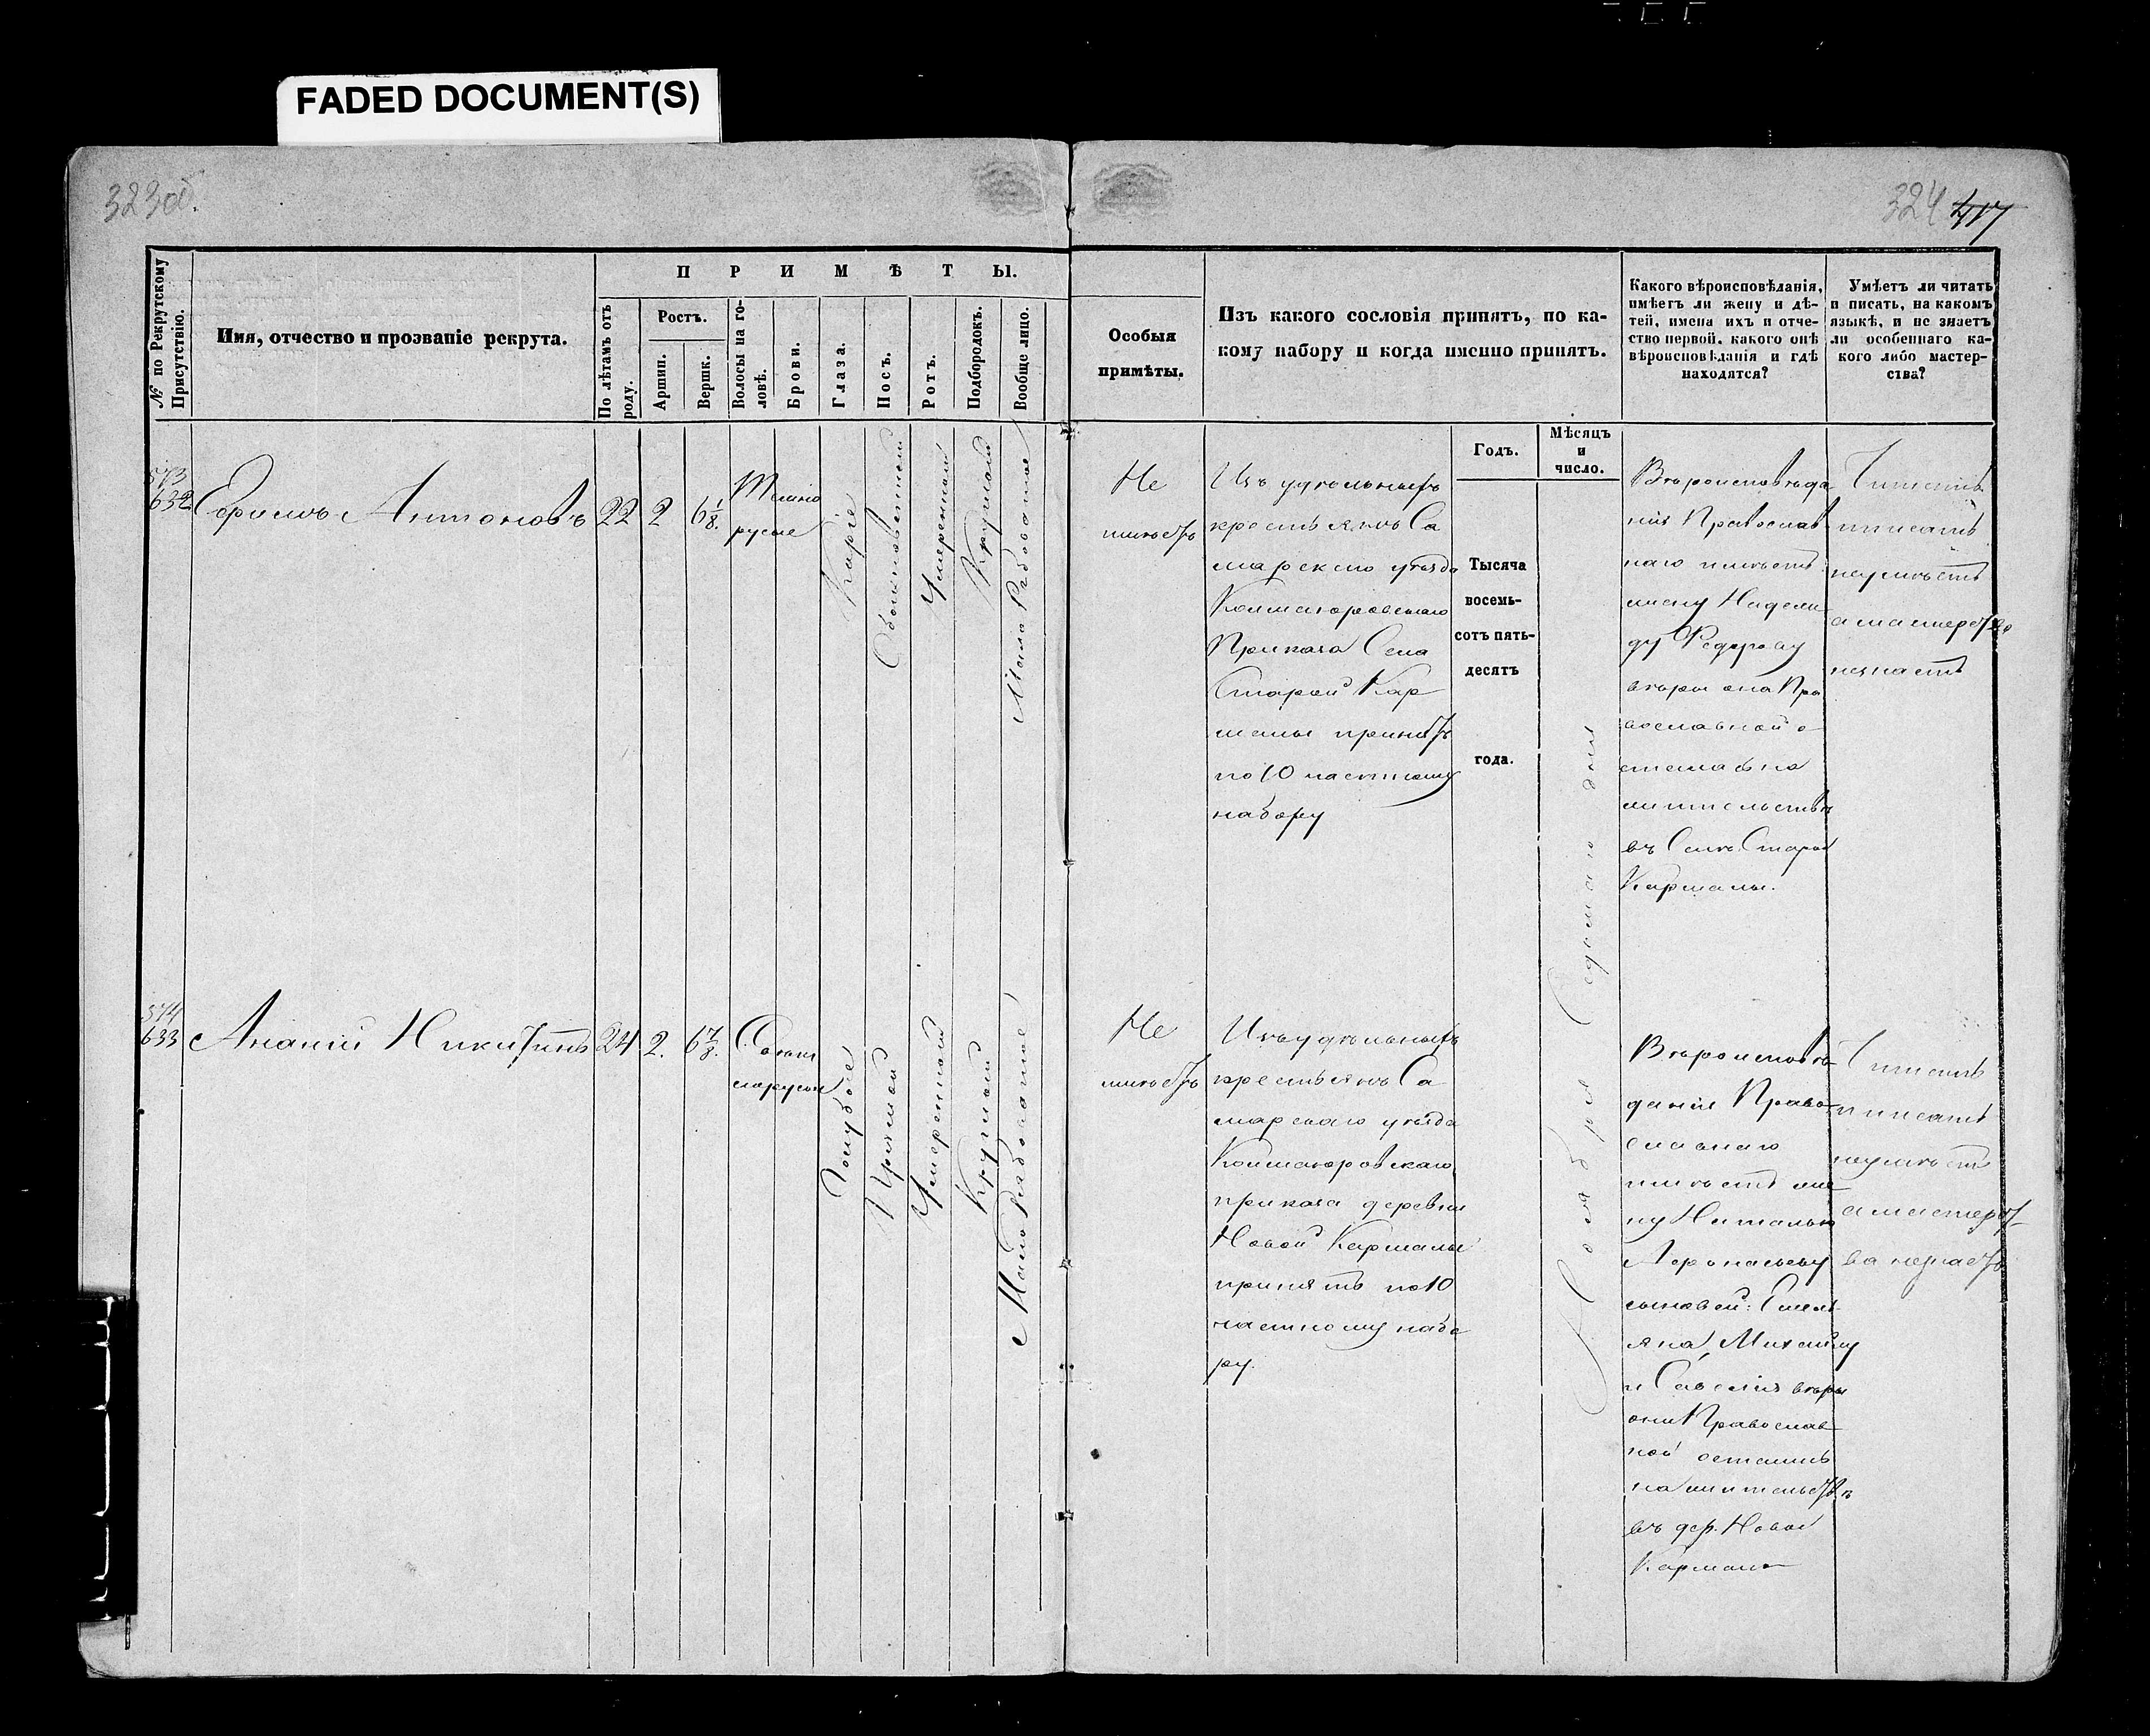 FADED DOCUMENT(S)
323об.
324 417
№ по Рекрутскому Присутствію.
Имя, отчество и прозваніе рекрута.
ПРИМѢТЫ.
По лѣтамъ отъ роду.
Ростъ.
Аршин.
Вершк.
Волосы на головѣ.
Брови.
Глаза.
Носъ.
Ротъ.
Подбородокъ.
Вообще лицо.
Особыя
примѣты.
Изъ какого сословія принятъ, по ка-
кому набору и когда именно принятъ.
Какого вѣроисповѣданія,
имѣетъ ли жену и дѣ-
тей, имена ихъ и отче-
ство первой, какого онѣ
вѣроисповѣданія и гдѣ
находятся?
Умѣетъ ли читать
и писать, на какомъ
языкѣ, и не знаетъ
ли особеннаго ка-
кого либо мастер-
ства?
Годъ.
Мѣсяцъ
и
число.
573
632
Ефимъ Антоновъ
22
2
6 1/8.
Темно
русые
Каріе
Обыкновенной
Умеренной
Круглой
Мало Рябоватое
Не
имѣетъ
Изъ удѣльныхъ
крестьянъ Са
марскаго уѣзда
Приказа Села
Старой Кар
малы принятъ
по 10 частному
набору
Тысяча
восемь-
сотъ пять-
десятъ
года.
Ноября Седмаго дня
Вѣроисповѣда
нія Православ
наго имѣетъ
жену Надеж
ду Федорову
вѣры она Пра
вославной о
ставлена на
жительствѣ
въ Селѣ Старой
Кармалы.
Читать
писать
неумѣетъ
а мастерства
незнаетъ
574
633
Ананій Никитинъ
24
2.
6 7/8.
Светло
русые
Голубые
Прямой
Умеренной
Круглой
Мало Рябоватое
Не
имѣетъ
Изъ удѣльныхъ
крестьянъ Са
марскаго уѣзда
приказа деревни
Новой Кармалы
принятъ по 10
частному набо
ру.
Вѣроисповѣ
данія Право
славнаго
имѣетъ же
ну Наталью
сыновей: Емель
яна, Михайлу
и Савелія вѣры
они Православ
ной остались
на жительствѣ
въ дер. Новой
Кармалѣ
Читать
писать
неумѣетъ
а мастерст
ва незнаетъ